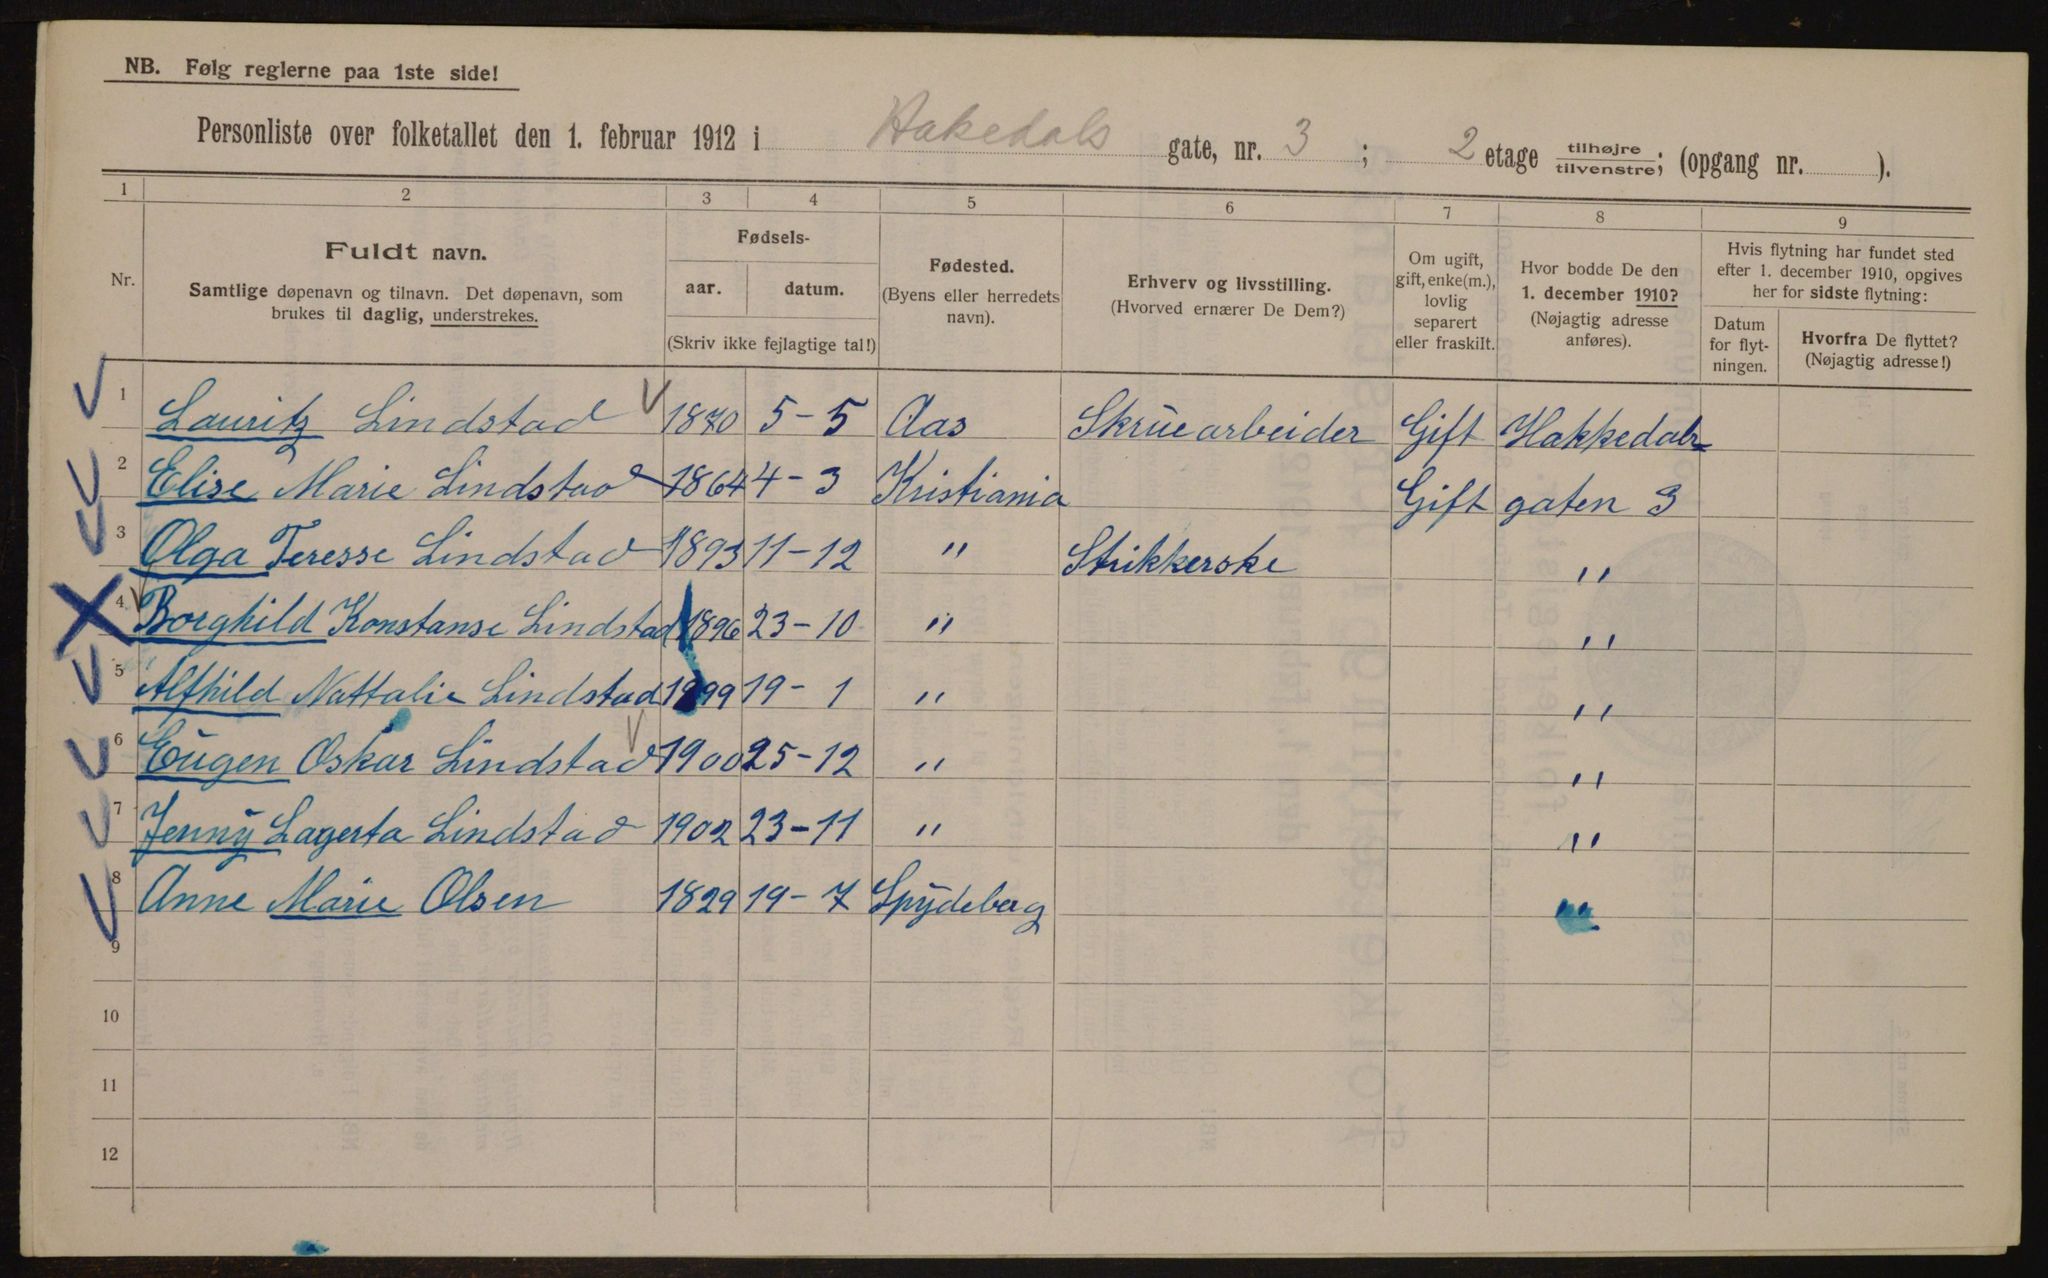 NB. Følg reglerne paa 1ste side!
Personliste over folketallet den 1. februar 1912 i Hakedals gate, nr. 3 ; 2 etage tilhøjre/tilvenstre; (opgang nr. ).
1 2 3 4 5 6 7 8 9
Nr.
Fuldt navn.
Samtlige døpenavn og tilnavn. Det døpenavn, som
brukes til daglig, understrekes.
Fødsels-
aar. datum.
(Skriv ikke fejlagtige tal!)
Fødested.
(Byens eller herredets
navn).
Erhverv og livsstilling.
(Hvorved ernærer De Dem?)
Om ugift,
gift, enke(m.),
lovlig
separert
eller fraskilt.
Hvor bodde De den
1. december 1910?
(Nøjagtig adresse
anføres).
Hvis flytning har fundet sted
efter 1. december 1910, opgives
her for sidste flytning:
Datum
for flyt-
ningen.
Hvorfra De flyttet?
(Nøjagtig adresse!)
1 Lauritz Lindstad 1870 5-5 Aas Skruearbeider Gift Hakkedals
2 Elise Marie Lindstad 1864 4-3 Kristiania Gift gaten 3
3 Olga Teresse Lindstad 1893 11-12 " Strikkerske "
4 Borghild Konstanse Lindstad 1896 23-10 " "
5 Alfhild Nattalie Lindstad 1899 19-1 " "
6 Eugen Oskar Lindstad 1900 25-12 " "
7 Jenny Lagerta Lindstad 1902 23-11 " "
8 Anne Marie Olsen 1829 19-7 Spydeberg "
9
10
11
12